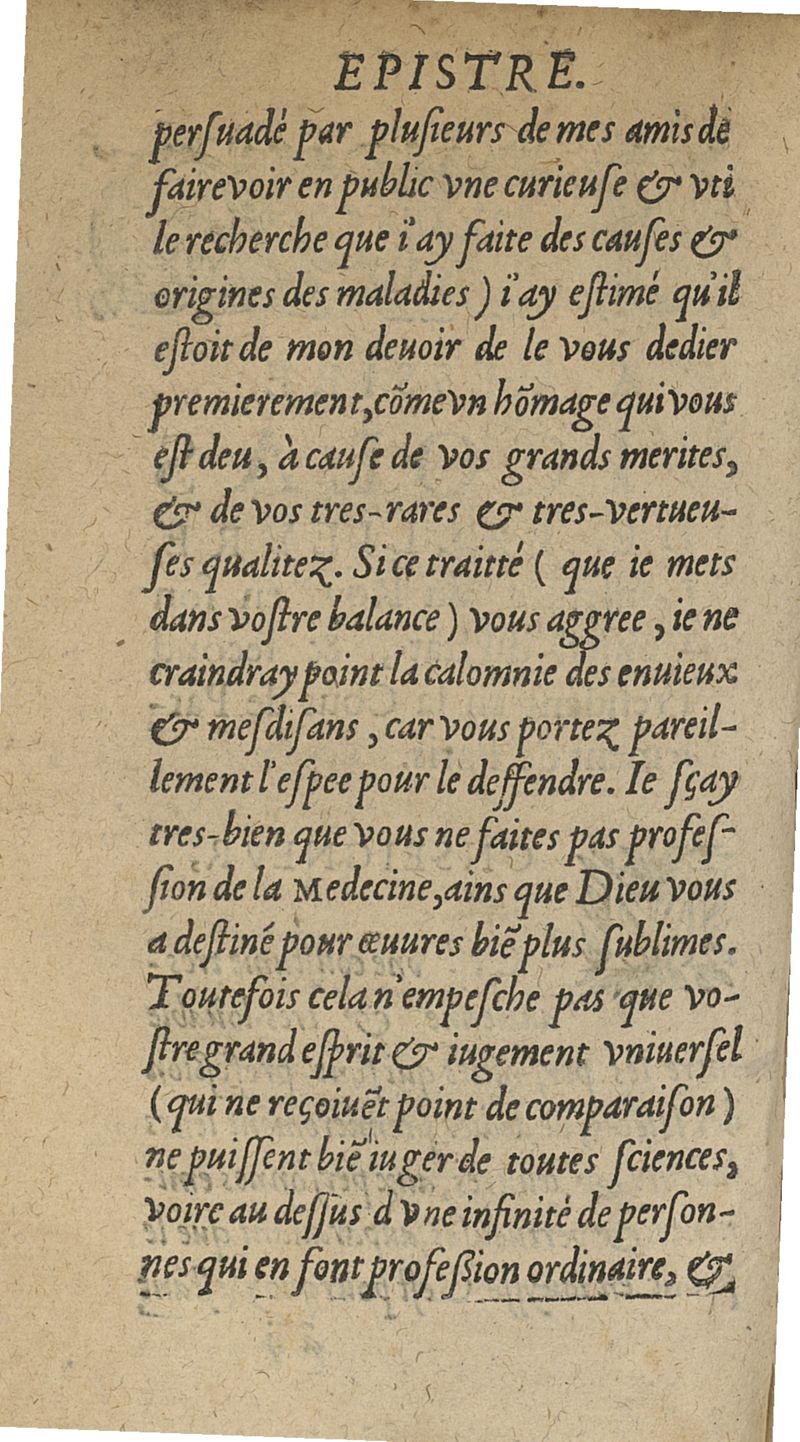 EPISTRE.
perſuadé par pluſieurs de mes amis de
faire voir en public vne curieuſe & vti
le recherche que i'ay faite des cauſes &
origines des maladies ) i'ay eſtimé qu'il
eſtoit de mon deuoir de le vous dedier
premierement, cõme vn hõmage qui vous
eſt deu, à cauſe de vos grands merites,
& de vos tres-rares & tres-vertueu-
ſes qualitez. Si ce traitté ( que ie mets
dans voſtre balance ) vous aggree, ie ne
craindray point la calomnie des enuieux
& meſdiſans, car vous portez pareil-
lement l'eſpee pour le deffendre. Ie ſçay
tres-bien que vous ne faites pas profeſ-
ſion de la Medecine, ains que Dieu vous
a deſtiné pour œuures biẽ plus ſublimes.
Toutefois cela n'empeſche pas que vo-
ſtre grand eſprit & iugement vniuerſel
(qui ne reçoiuẽt point de comparaiſon)
ne puiſſent biẽ iuger de toutes ſciences,
voire au deſſus d vne infinité de perſon-
nes qui en font profeßion ordinaire, &